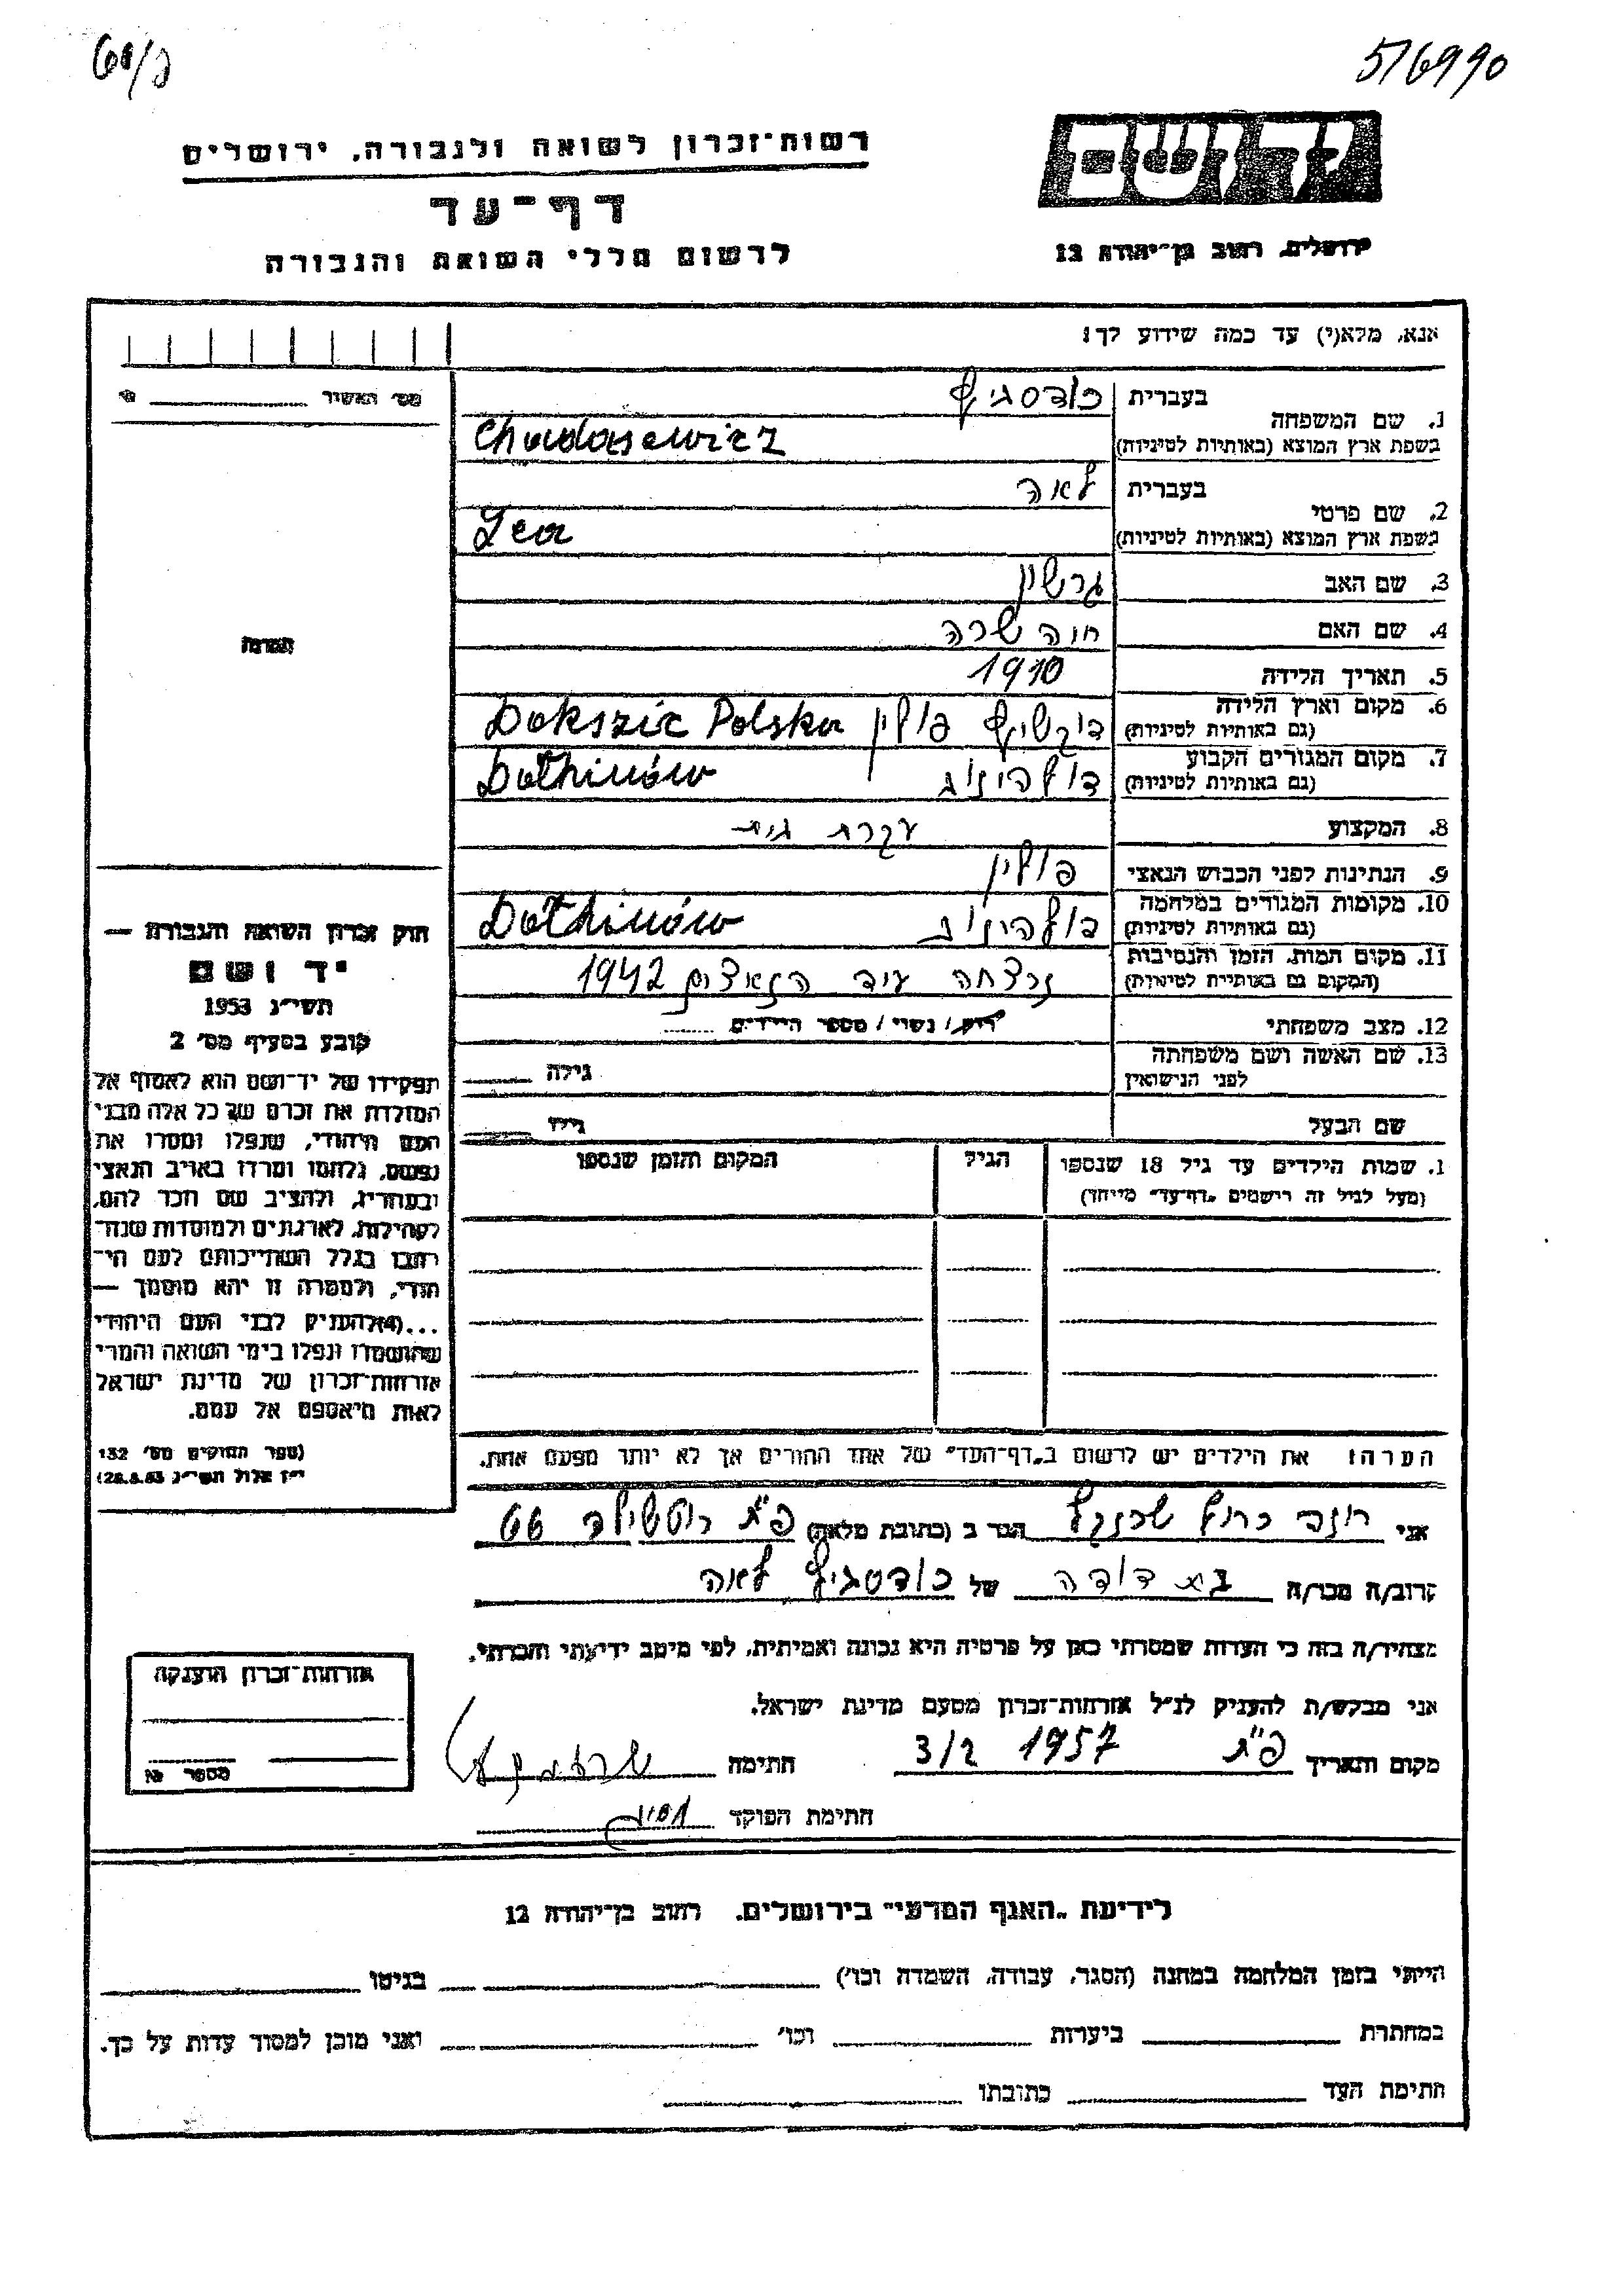 516990
רשות־זכרון לשואה ולגבורה, ירושלים
יד ושם
דף־עד
לרשום חללי השואה והגבורה
ירושלים, רחוב בן־יהודה 12
אנא, מלא(י) עד כמה שידוע לך:
מס׳ האשיר
1. שם המשפחה
בעברית
בשפת ארץ המוצא (באותיות לטיניות)
Chodasewicz
2. שם פרטי
בעברית לאה
בשפת ארץ המוצא (באותיות לטיניות) Lea
3. שם האב גרשון
4. שם האם חוה שרה
5. תאריך הלידה 1910
6. מקום וארץ הלידה (גם באותיות לטיניות) דוקשיץ פולין Dokszic Polska
7. מקום המגורים הקבוע (גם באותיות לטיניות) דולהינוב Dołhinów
8. המקצוע עקרת בית
9. הנתינות לפני הכבוש הנאצי פולין
10. מקומות המגורים במלחמה (גם באותיות לטיניות) דולהינוב Dołhinów
11. מקום המות, הזמן והנסיבות (המקום גם באותיות לטיניות) נרצחה ע״י הנאצים 1942
12. מצב משפחתי רווק / נשוי / מספר הילדים
13. שם האשה ושם משפחתה לפני הנישואין גילה
שם הבעל גילו
1. שמות הילדים עד גיל 18 שנספו (מעל לגיל זה רישמים „דף־עד״ מייחד)
הגיל
המקום והזמן שנספו
הערה: את הילדים יש לרשום ב„דף־העד״ של אחד ההורים אך לא יותר מפעם אחת.
חוק זכרון השואה והגבורה —
יד ושם
תשי״ג 1953
קובע בסעיף מס׳ 2
תפקידו של יד־ושם הוא לאסוף אל
המולדת את זכרם של כל אלה מבני
העם היהודי, שנפלו ומסרו את
נפשם, נלחמו ומרדו באויב הנאצי
ובעוזריו, ולהציב שם וזכר להם,
לקהילות, לארגונים ולמוסדות שנח־
רבו בגלל השתייכותם לעם הי־
הודי, ולמטרה זו יהא מוסמך —
...(4) להעניק לבני העם היהודי
שהושמדו ונפלו בימי השואה והמרי
אזרחות־זכרון של מדינת ישראל
לאות היאספם אל עמם.
(ספר החוקים מס׳ 132
י״ז אלול תשי״ג 28.8.53)
אני הגר ב (כתובת מלאה) פ״ת רוטשילד 66
קרוב/ה מכר/ה בת דודה של לאה
מצהיר/ה בזה כי העדות שמסרתי כאן על פרטיה היא נכונה ואמיתית, לפי מיטב ידיעתי והכרתי.
אני מבקש/ת להעניק לנ״ל אזרחות־זכרון מטעם מדינת ישראל.
מקום ותאריך פ״ת 3/2 1957 חתימה
חתימת הפוקד
אזרחות־זכרון הוענקה
מספר
לידיעת „האגף המדעי״ בירושלים, רחוב בן־יהודה 12
הייתי בזמן המלחמה במחנה (הסגר, עבודה, השמדה וכו׳) בגיטו
במחתרת ביערות וכו׳ ואני מוכן למסור עדות על כך.
חתימת העד כתובתו